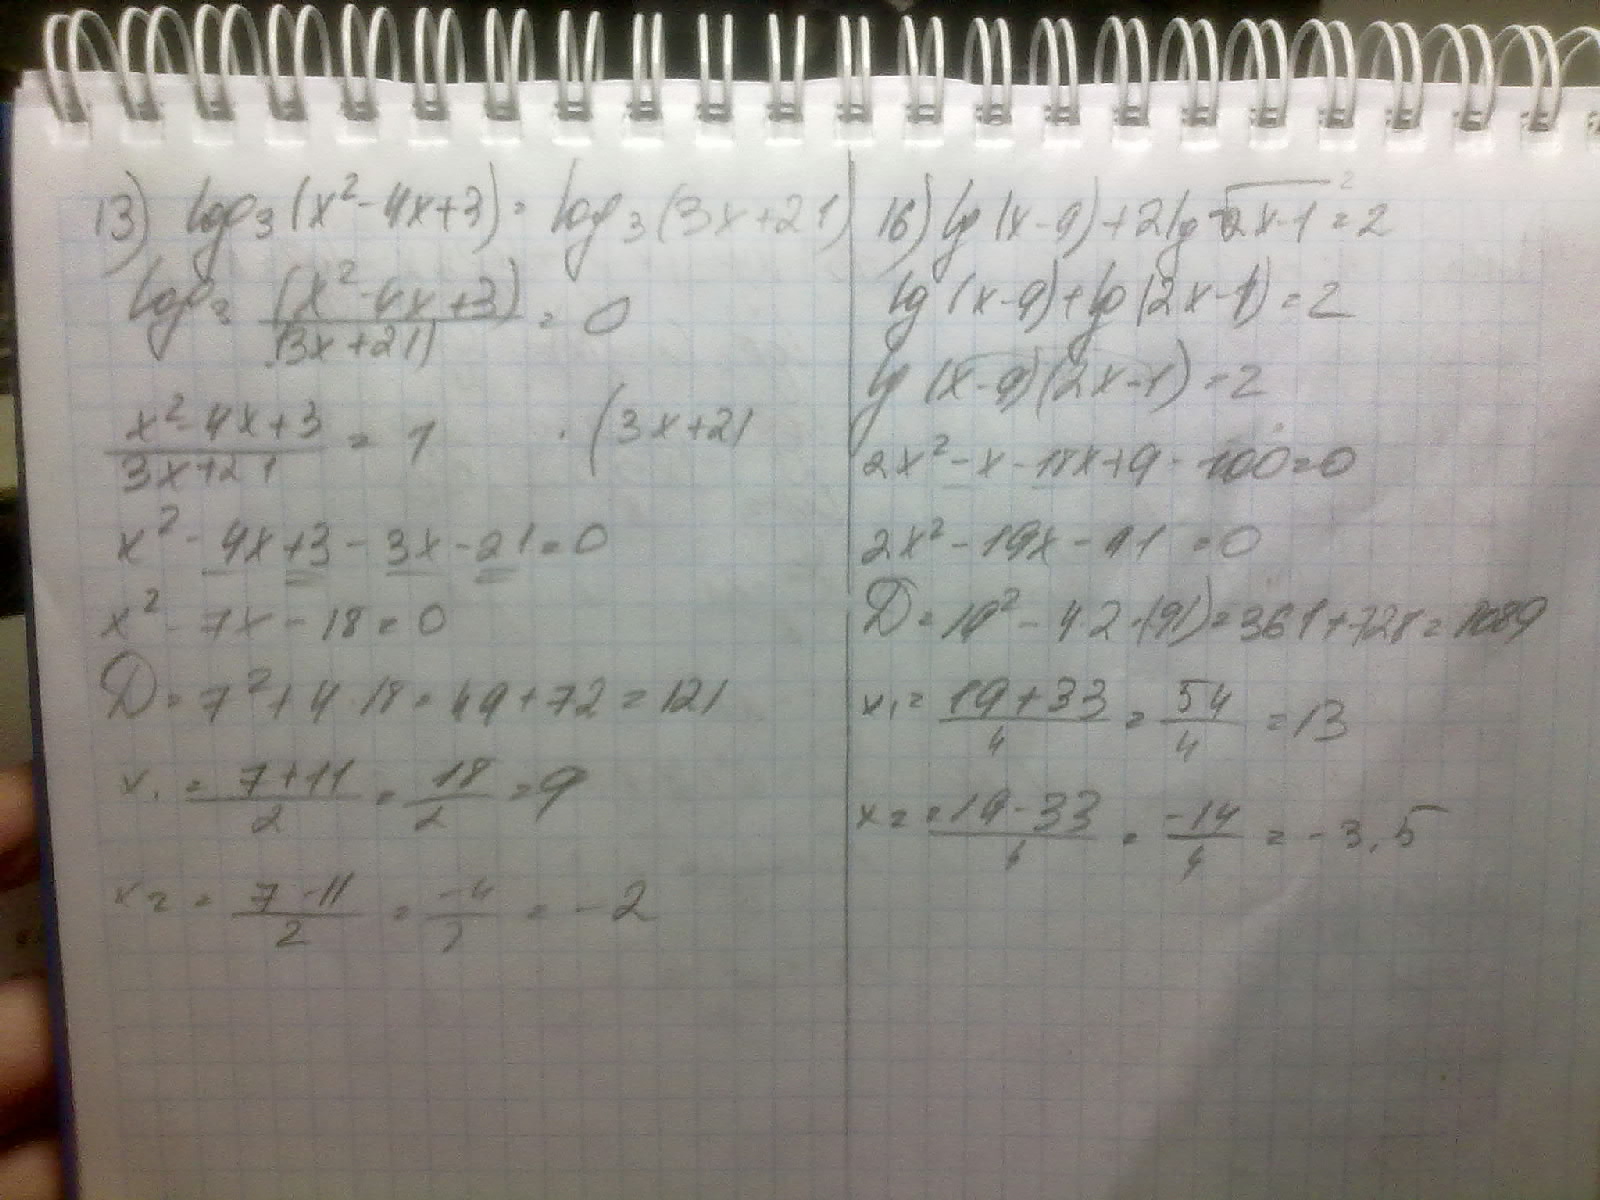 13) log₃(x²-4x+3) = log₃(3x+21)
log₃ (x²-4x+3)/(3x+21) = 0
(x²-4x+3)/(3x+21) = 1 · (3x+21
x²-4x+3-3x-21=0
x²-7x-18=0
D=7²+4·18=49+72=121
x₁=(7+11)/2=18/2=9
x₂=(7-11)/2=-4/2=-2
16) lg(x-9)+2lg√2x-1=2
lg(x-9)+lg(2x-1)=2
lg(x-9)(2x-1)=2
2x²-x-18x+9-100=0
2x²-19x-91=0
D=19²-4·2·(91)=361+728=1089
x₁=(19+33)/4=54/4=13
x₂=(19-33)/4=-14/4=-3,5